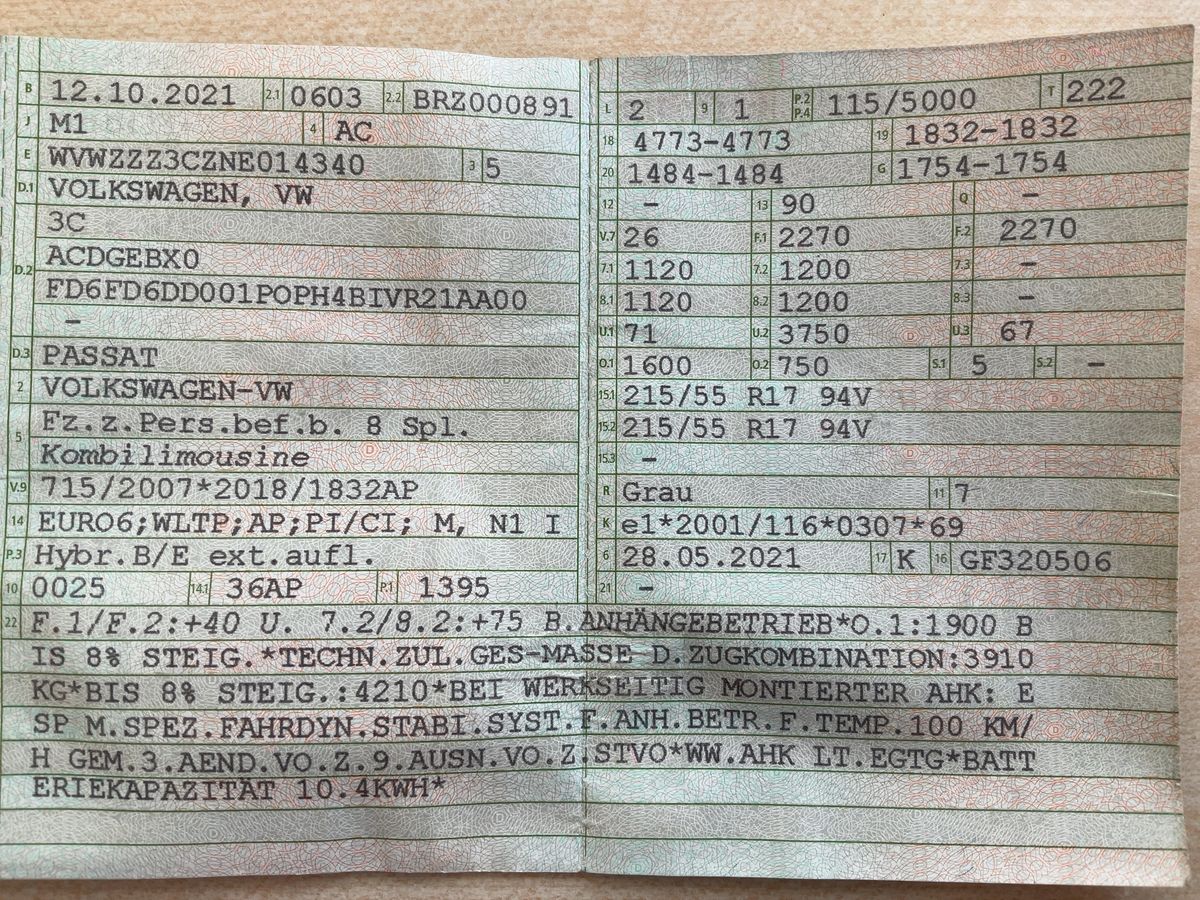 B 12.10.2021 2.1 0603 2.2 BRZ000891
J M1 4 AC
E WVWZZZ3CZNE014340 3 5
D.1 VOLKSWAGEN, VW
D.2 3C
ACDGEBX0
FD6FD6DD001POPH4BIVR21AA00
–
D.3 PASSAT
2 VOLKSWAGEN-VW
5 Fz.z.Pers.bef.b. 8 Spl.
Kombilimousine
V.9 715/2007*2018/1832AP
14 EURO6;WLTP;AP;PI/CI; M, N1 I
P.3 Hybr.B/E ext.aufl.
10 0025 14.1 36AP P.1 1395
L 2 9 1 P.2 P.4 115/5000 T 222
18 4773-4773 19 1832-1832
20 1484-1484 G 1754-1754
12 – 13 90 Q –
V.7 26 F.1 2270 F.2 2270
7.1 1120 7.2 1200 7.3 –
8.1 1120 8.2 1200 8.3 –
U.1 71 U.2 3750 U.3 67
O.1 1600 O.2 750 S.1 5 S.2 –
15.1 215/55 R17 94V
15.2 215/55 R17 94V
15.3 –
R Grau 11 7
K e1*2001/116*0307*69
6 28.05.2021 17 K 16 GF320506
21 –
22 F.1/F.2:+40 U. 7.2/8.2:+75 B.ANHÄNGEBETRIEB*O.1:1900 B
IS 8% STEIG.*TECHN.ZUL.GES-MASSE D.ZUGKOMBINATION:3910
KG*BIS 8% STEIG.:4210*BEI WERKSEITIG MONTIERTER AHK: E
SP M.SPEZ.FAHRDYN.STABI.SYST.F.ANH.BETR.F.TEMP.100 KM/
H GEM.3.AEND.VO.Z.9.AUSN.VO.Z.STVO*WW.AHK LT.EGTG*BATT
ERIEKAPAZITÄT 10.4KWH*